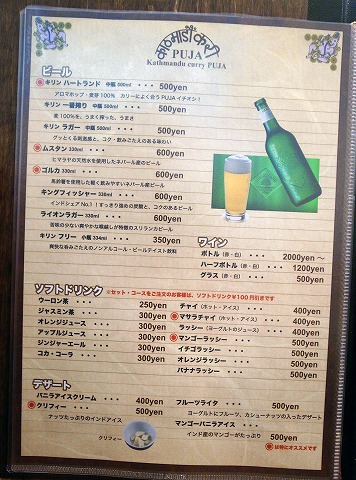 काठमाडौं करी
PUJA
Kathmandu curry PUJA
ビール
キリン ハートランド 中瓶 500ml ・・・ 500yen
アロマホップ・麦芽100% カリーによく合う PUJA イチオシ！
キリン 一番搾り 中瓶 500ml ・・・ 500yen
麦100%を、うまく搾った、うまさ
キリン ラガー 中瓶 500ml ・・・ 500yen
グッとくる刺激感と、コク・飲みごたえのある味わい
ムスタン 330ml ・・・ 600yen
ヒマラヤの天然水を使用したネパール産のビール
ゴルカ 330ml ・・・ 600yen
を使用した軽く飲みやすいネパール産ビール
キングフィッシャー 330ml ・・・ 600yen
インドシェアNo.1！すっきり強めの炭酸と、コクのあるビール
ライオンラガー 330ml ・・・ 600yen
苦味の少ない爽やかな喉越しが特徴のスリランカビール
キリン フリー 小瓶 334ml ・・・ 350yen
爽快な呑みごたえのノンアルコール・ビールテイスト飲料
ワイン
ボトル（赤・白）・・・ 2000yen～
ハーフボトル（赤・白）・・・ 1200yen
グラス（赤・白）・・・ 500yen
ソフトドリンク ※セット・コースをご注文のお客様は、ソフトドリンク￥100円引きです
ウーロン茶 ・・・ 250yen
ジャスミン茶 ・・・ 300yen
オレンジジュース ・・・ 300yen
アップルジュース ・・・ 300yen
ジンジャーエール ・・・ 300yen
コカ・コーラ ・・・ 300yen
チャイ（ホット・アイス）・・・ 400yen
マサラチャイ（ホット・アイス）・・・ 400yen
ラッシー（ヨーグルトのジュース）・・・ 400yen
マンゴーラッシー ・・・ 500yen
イチゴラッシー ・・・ 500yen
オレンジラッシー ・・・ 500yen
バナナラッシー ・・・ 500yen
デザート
バニラアイスクリーム ・・・ 400yen
クリフィー ・・・ 500yen
ナッツたっぷりのインドアイス
クリフィー
フルーツライタ ・・・ 500yen
ヨーグルトにフルーツ、カシューナッツの入ったデザート
マンゴーバニラアイス ・・・ 500yen
インド産のマンゴーがたっぷり
は特にオススメです